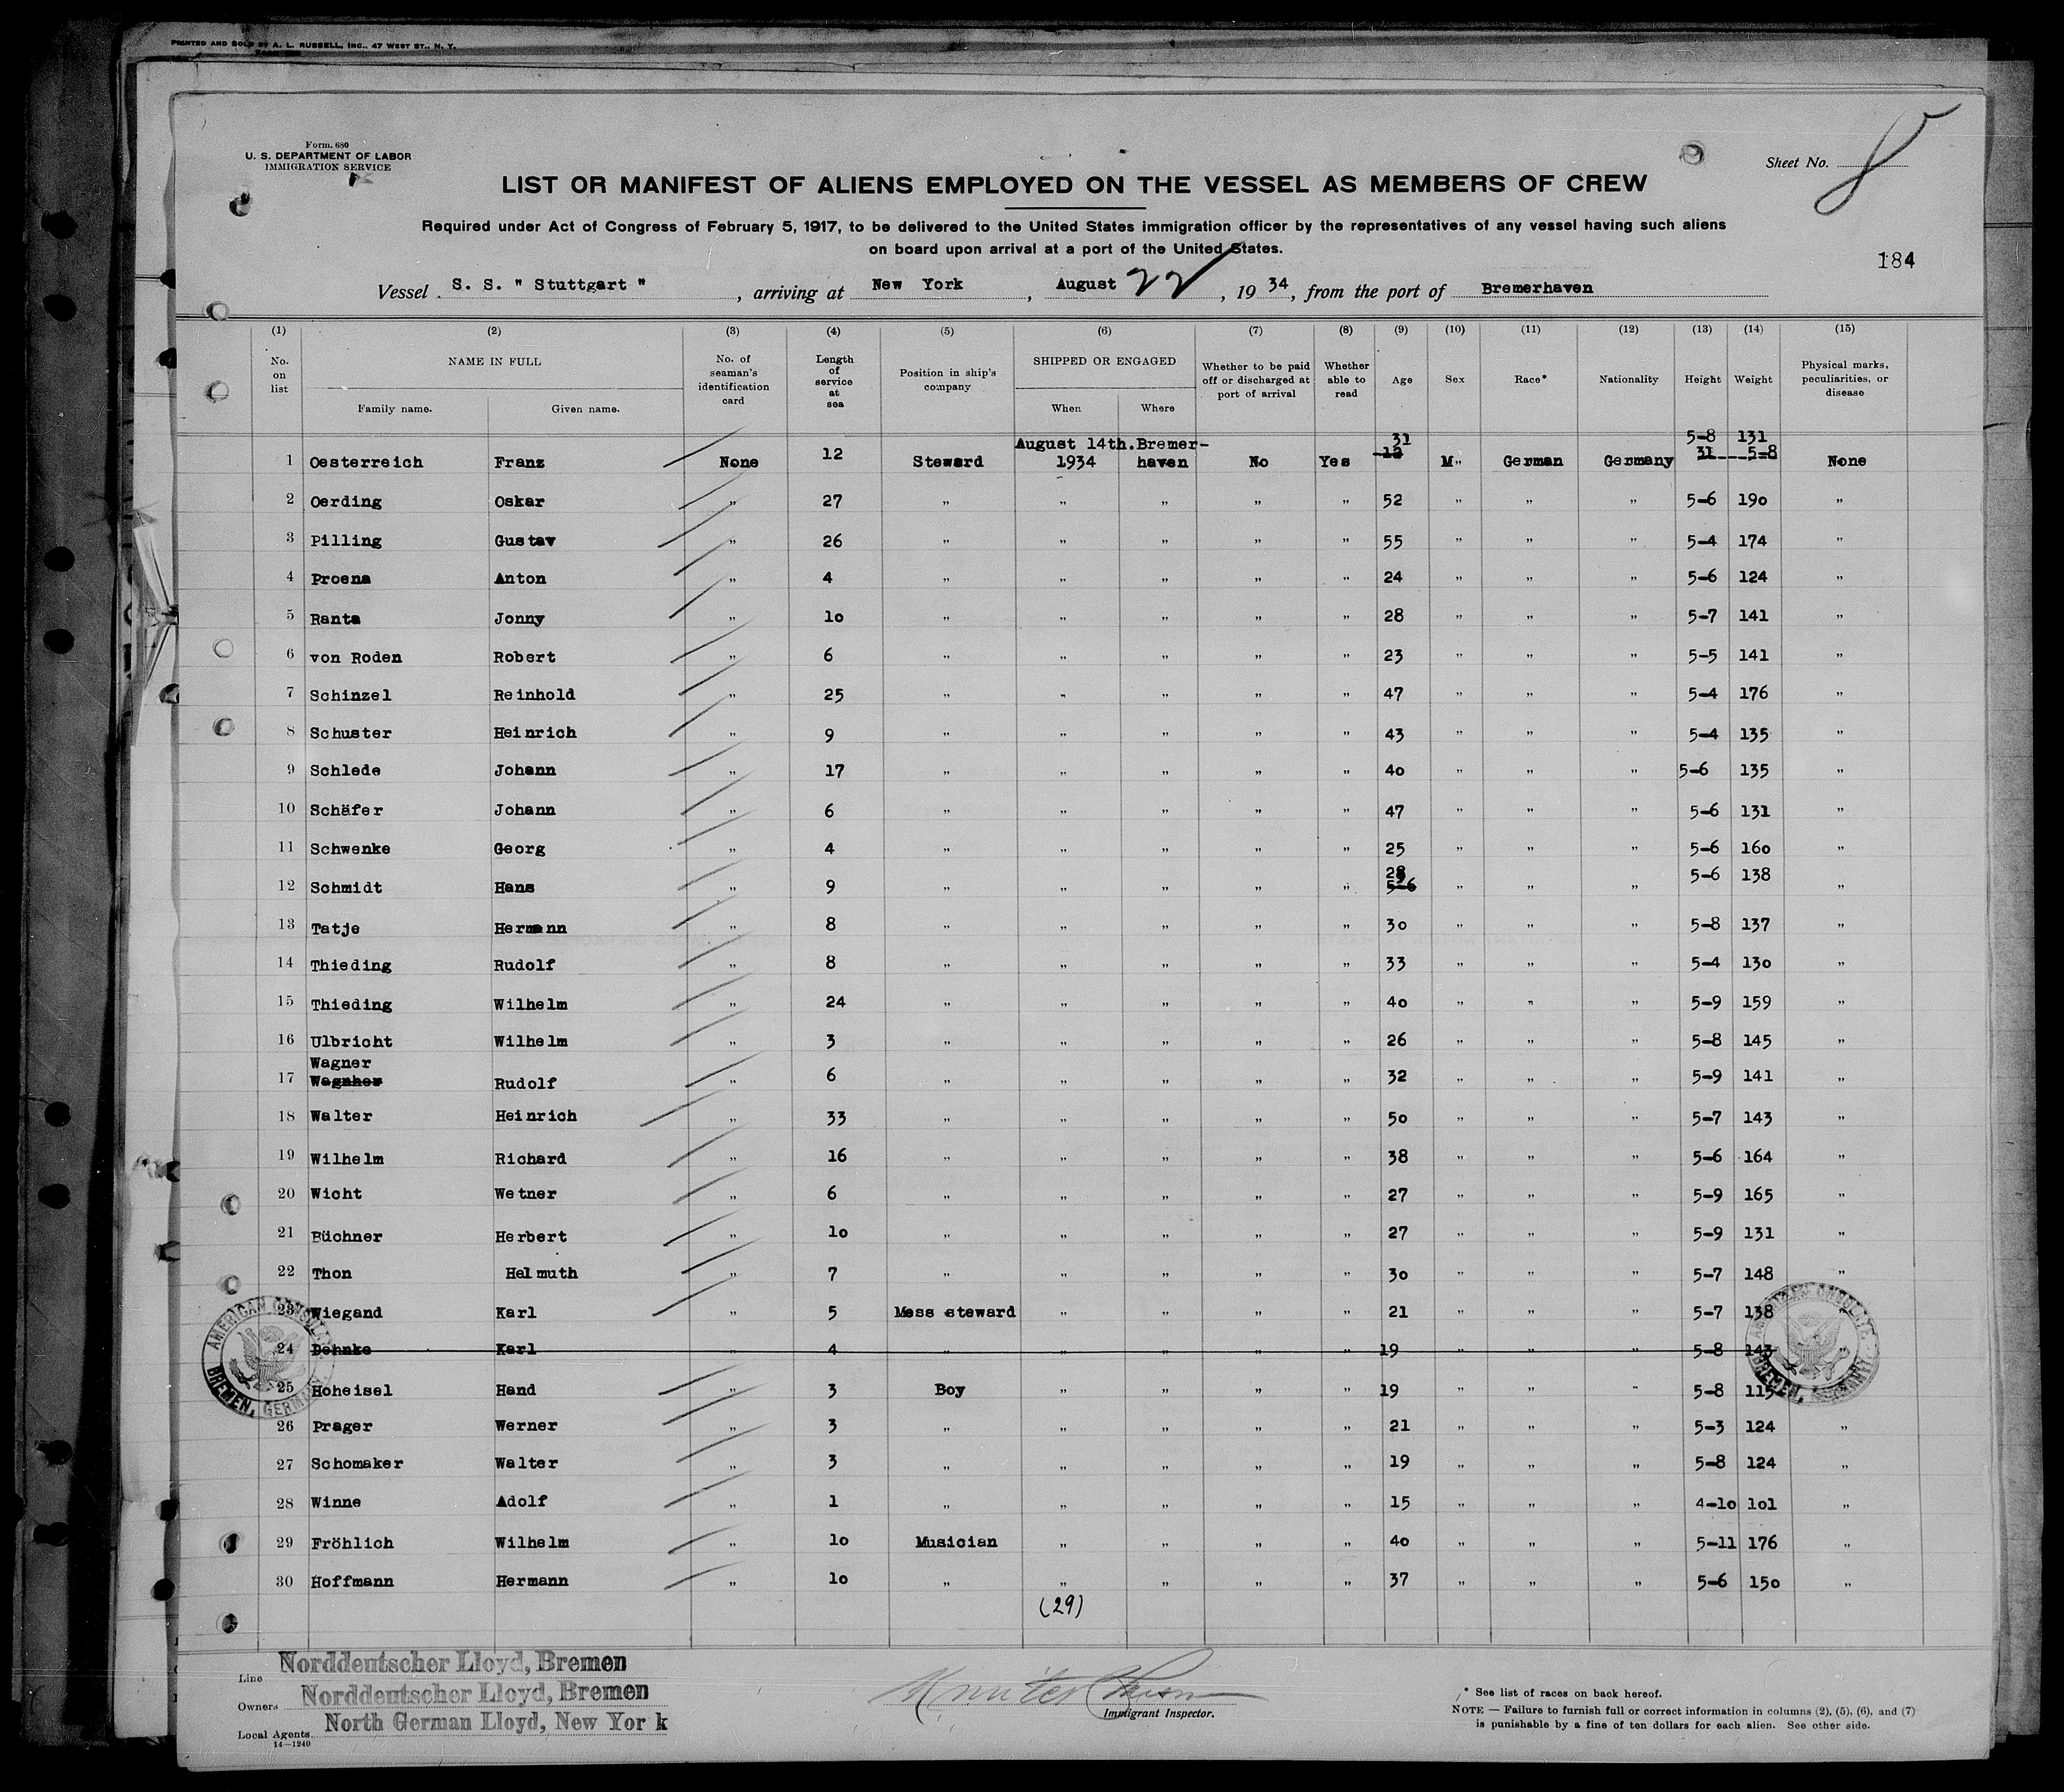 PRINTED AND SOLD BY A. L. RUSSELL, INC., 47 WEST ST., N. Y.
Form. 680
U. S. DEPARTMENT OF LABOR
IMMIGRATION SERVICE
Sheet No. 8
LIST OR MANIFEST OF ALIENS EMPLOYED ON THE VESSEL AS MEMBERS OF CREW
Required under Act of Congress of February 5, 1917, to be delivered to the United States immigration officer by the representatives of any vessel having such aliens
on board upon arrival at a port of the United States.
184
Vessel S. S. " Stuttgart ", arriving at New York, August 22, 1934, from the port of Bremerhaven
(1) (2) (3) (4) (5) (6) (7) (8) (9) (10) (11) (12) (13) (14) (15)
No. on list NAME IN FULL Family name. Given name. No. of seaman's identification card Length of service at sea Position in ship's company SHIPPED OR ENGAGED When Where Whether to be paid off or discharged at port of arrival Whether able to read Age Sex Race* Nationality Height Weight Physical marks, peculiarities, or disease
August 14th. Bremer- 31 5-8 131
1 Oesterreich Franz None 12 Steward 1934 haven No Yes 12 M" German Germany 31 5-8 None
2 Oerding Oskar " 27 " " " " " 52 " " " 5-6 190 "
3 Pilling Gustav " 26 " " " " " 55 " " " 5-4 174 "
4 Proena Anton " 4 " " " " " 24 " " " 5-6 124 "
5 Ranta Jonny " 10 " " " " " 28 " " " 5-7 141 "
6 von Roden Robert " 6 " " " " " 23 " " " 5-5 141 "
7 Schinzel Reinhold " 25 " " " " " 47 " " " 5-4 176 "
8 Schuster Heinrich " 9 " " " " " 43 " " " 5-4 135 "
9 Schlede Johann " 17 " " " " " 40 " " " 5-6 135 "
10 Schäfer Johann " 6 " " " " " 47 " " " 5-6 131 "
11 Schwenke Georg " 4 " " " " " 25 " " " 5-6 160 "
12 Schmidt Hans " 9 " " " " " 28 5-6 " " " 5-6 138 "
13 Tatje Hermann " 8 " " " " " 30 " " " 5-8 137 "
14 Thieding Rudolf " 8 " " " " " 33 " " " 5-4 130 "
15 Thieding Wilhelm " 24 " " " " " 40 " " " 5-9 159 "
16 Ulbricht Wilhelm " 3 " " " " " 26 " " " 5-8 145 "
Wagner
17 Wagnher Rudolf " 6 " " " " " 32 " " " 5-9 141 "
18 Walter Heinrich " 33 " " " " " 50 " " " 5-7 143 "
19 Wilhelm Richard " 16 " " " " " 38 " " " 5-6 164 "
20 Wicht Wetner " 6 " " " " " 27 " " " 5-9 165 "
21 Büchner Herbert " 10 " " " " " 27 " " " 5-9 131 "
22 Thon Helmuth " 7 " " " " " 30 " " " 5-7 148 "
23 Wiegand Karl " 5 Mess steward " " " " 21 " " " 5-7 138 "
24 Dehnke Karl " 4 " " " " " 19 " " " 5-8 143 "
25 Hoheisel Hand " 3 Boy " " " " 19 " " " 5-8 115
26 Prager Werner " 3 " " " " " 21 " " " 5-3 124 "
27 Schomaker Walter " 3 " " " " " 19 " " " 5-8 124 "
28 Winne Adolf " 1 " " " " " 15 " " " 4-10 101 "
29 Fröhlich Wilhelm " 10 Musician " " " " 40 " " " 5-11 176 "
30 Hoffmann Hermann " 10 " " " " " 37 " " " 5-6 150 "
(29)
AMERICAN CONSULATE BREMEN, GERMANY
AMERICAN CONSULATE BREMEN, GERMANY
Line Norddeutscher Lloyd, Bremen
Owners Norddeutscher Lloyd, Bremen
Local Agents. North German Lloyd, New York
14—1240
Immigrant Inspector.
* See list of races on back hereof.
NOTE — Failure to furnish full or correct information in columns (2), (5), (6), and (7)
is punishable by a fine of ten dollars for each alien. See other side.